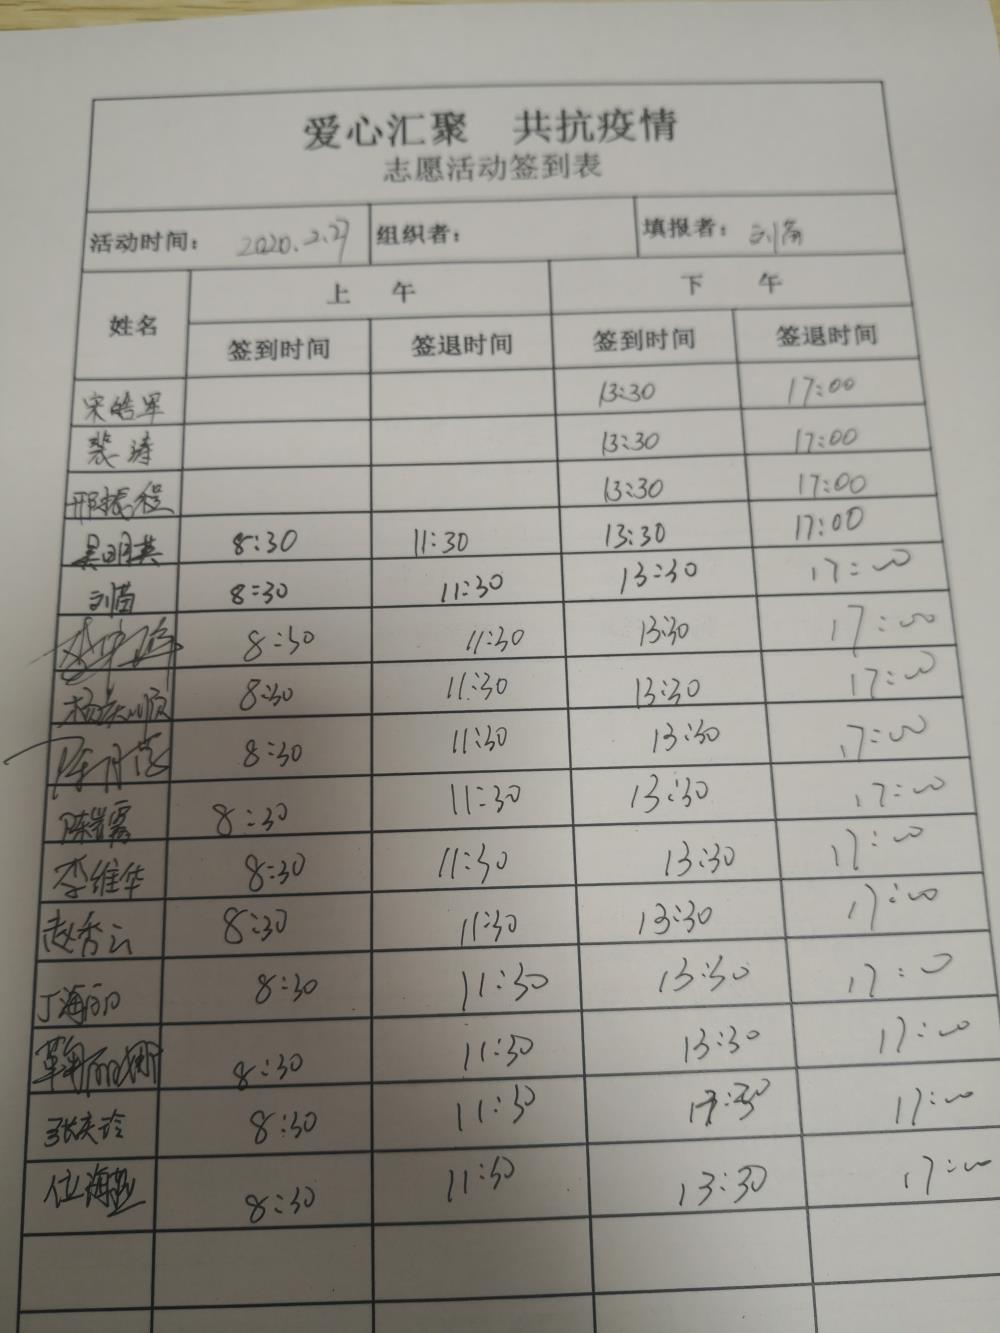 爱心汇聚 共抗疫情
志愿活动签到表
活动时间： 2020.2.27 组织者： 填报者： 刘苗
姓名 上 午 下 午
签到时间 签退时间 签到时间 签退时间
宋皓军 13:30 17:00
裴涛 13:30 17:00
邢振程 13:30 17:00
吴明英 8:30 11:30 13:30 17:00
刘苗 8:30 11:30 13:30 17:00
8:30 11:30 13:30 17:00
杨庆顺 8:30 11:30 13:30 17:00
8:30 11:30 13:30 17:00
陈 8:30 11:30 13:30 17:00
李维华 8:30 11:30 13:30 17:00
赵秀云 8:30 11:30 13:30 17:00
丁海丽 8:30 11:30 13:30 17:00
鞠丽娜 8:30 11:30 13:30 17:00
张庆玲 8:30 11:30 13:30 17:00
位海燕 8:30 11:30 13:30 17:00